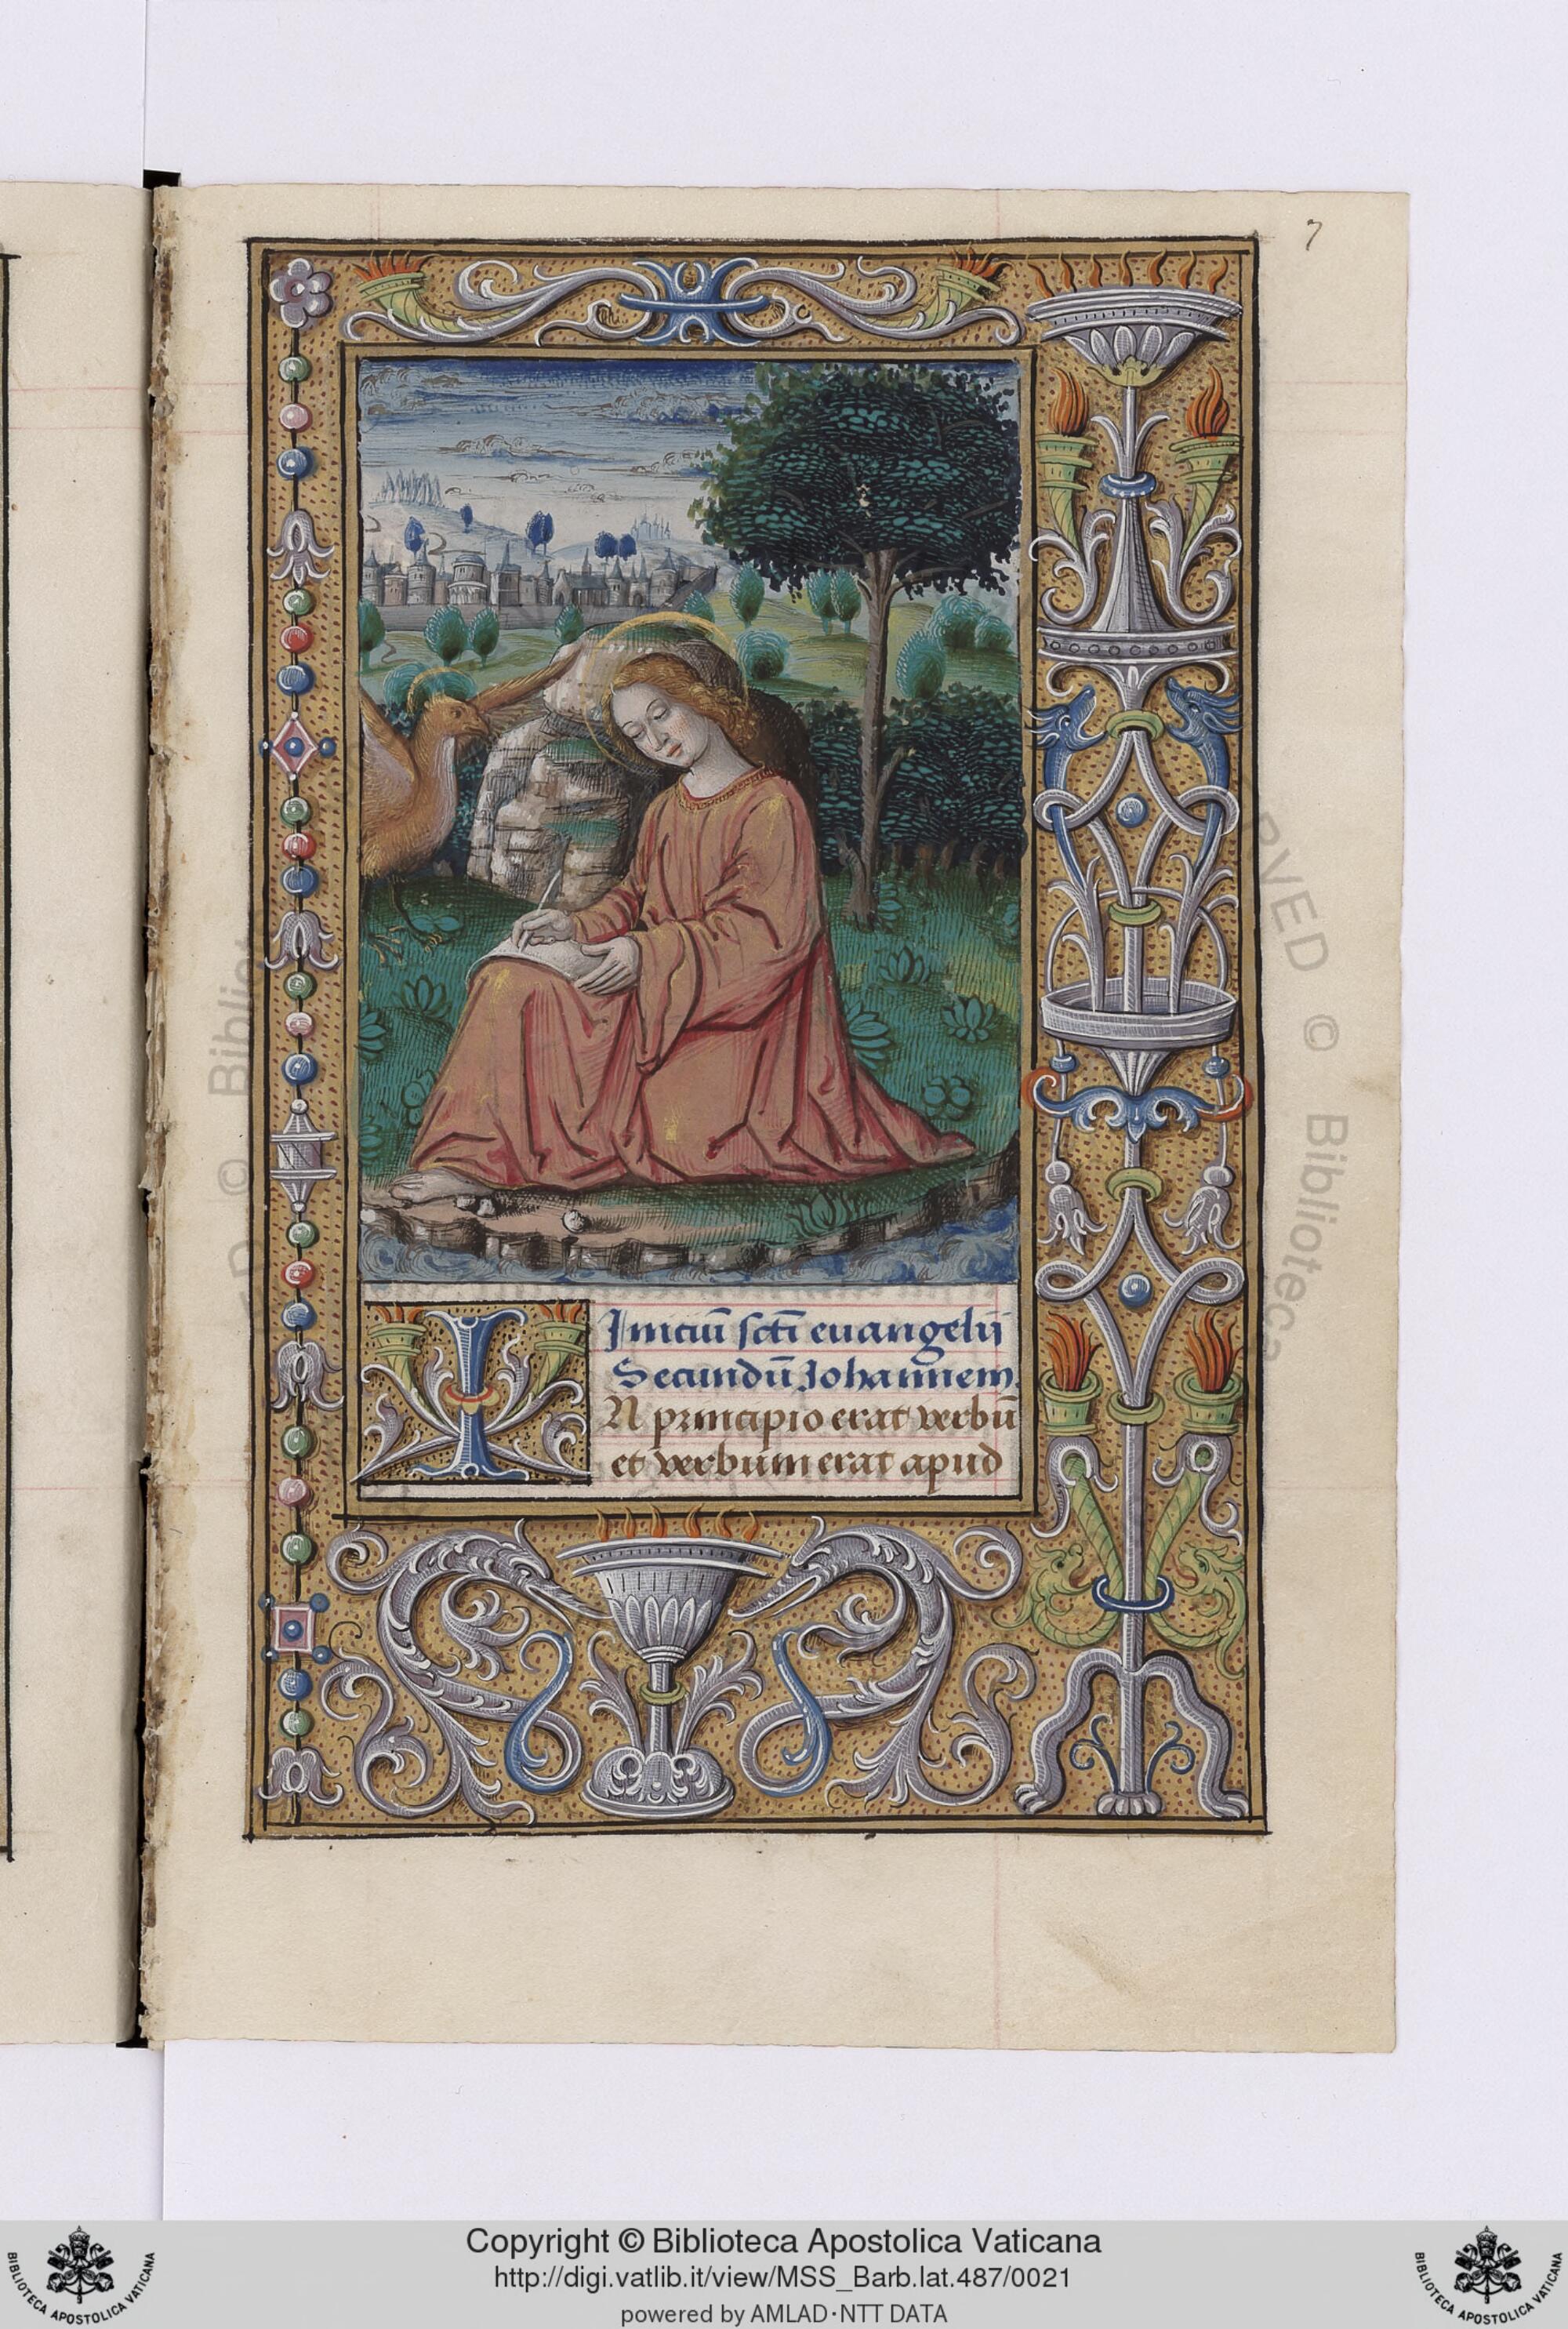 7
Iniciū scti euangelij
Secundū Johannem.
IN principio erat verbū
et verbum erat apud
© Biblioteca
RVED © Biblioteca
ED © Bibliote
Copyright © Biblioteca Apostolica Vaticana
http://digi.vatlib.it/view/MSS_Barb.lat.487/0021
powered by AMLAD·NTT DATA
BIBLIOTECA APOSTOLICA VATICANA
BIBLIOTECA APOSTOLICA VATICANA